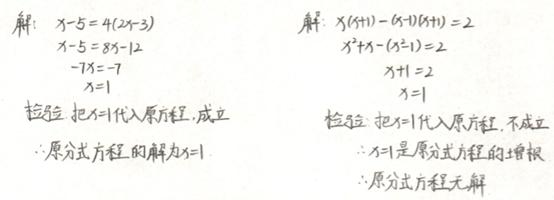 解: x-5=4(2x-3)
x-5=8x-12
-7x=-7
x=1
检验:把x=1代入原方程,成立
∴原分式方程的解为x=1.
解: x(x+1)-(x-1)(x+1)=2
x²+x-(x²-1)=2
x+1=2
x=1
检验:把x=1代入原方程,不成立
∴x=1是原分式方程的增根
∴原分式方程无解